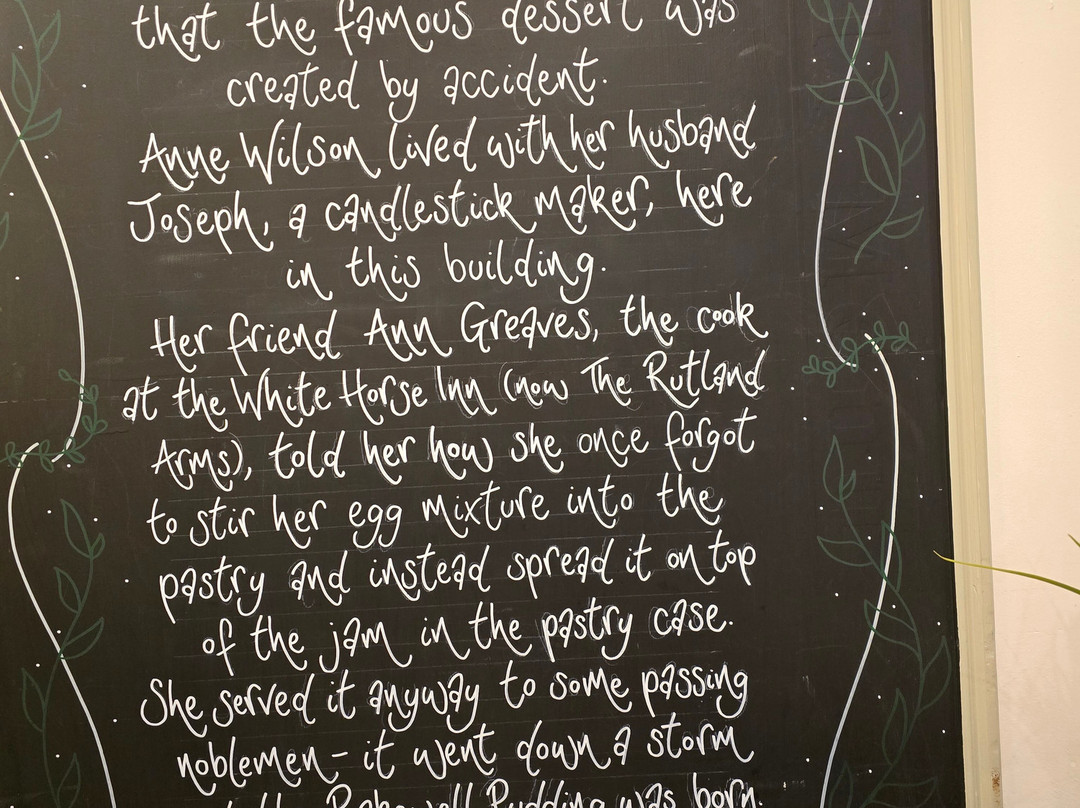 that the famous dessert was
created by accident.
Anne Wilson lived with her husband
Joseph, a candlestick maker, here
in this building.
Her friend Ann Greaves, the cook
at the White Horse Inn (now The Rutland
Arms), told her how she once forgot
to stir her egg mixture into the
pastry and instead spread it on top
of the jam in the pastry case.
She served it anyway to some passing
noblemen - it went down a storm
the Bakewell Pudding was born.